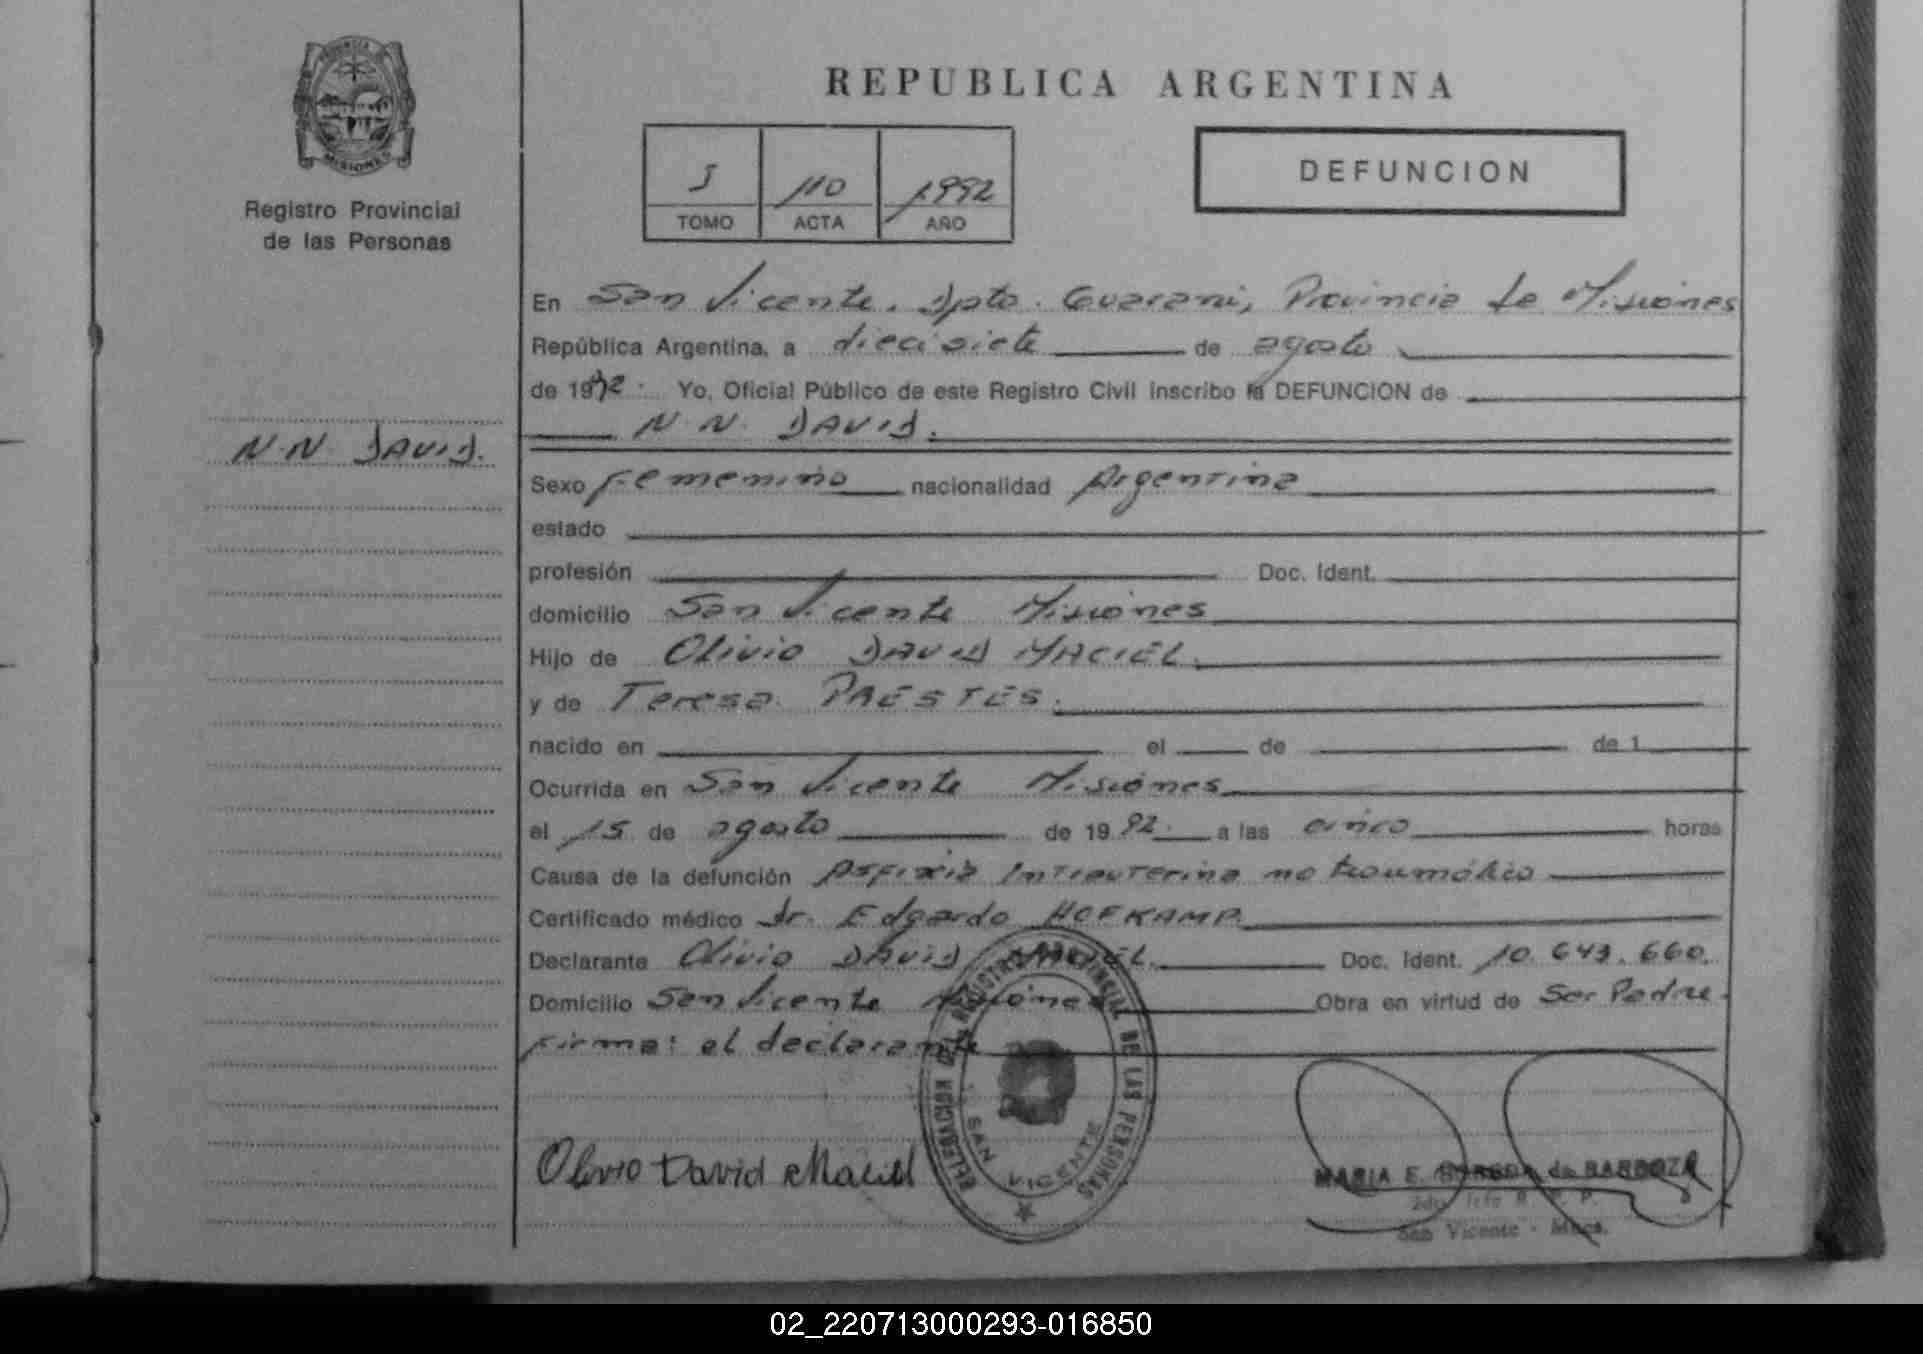 PROVINCIA DE
MISIONES
Registro Provincial
de las Personas
N.N. DAVID.
REPUBLICA ARGENTINA
I 110 1992
TOMO ACTA AÑO
DEFUNCION
En San Vicente. Dpto. Guarani, Provincia de Misiones
República Argentina, a diecisiete de agosto
de 1992. Yo, Oficial Público de este Registro Civil inscribo la DEFUNCION de
N. N. DAVID.
Sexo Femenino nacionalidad Argentina
estado
profesión Doc. Ident.
domicilio San Vicente Misiones
Hijo de Olivio DAVID MACIEL.
y de Teresa PRESTES.
nacido en el de de 1
Ocurrida en San Vicente Misiones
el 15 de agosto de 1992. a las cinco horas
Causa de la defunción Asfixia Intrauterina no traumática
Certificado médico Dr. Edgardo HOFKAMP.
Declarante Olivio DAVID MACIEL. Doc. Ident. 10.643.660.
Domicilio San Vicente Misiones Obra en virtud de Ser Padre.
Firma: el declarante
DELEGACION DEL REGISTRO PROVINCIAL DE LAS PERSONAS
SAN VICENTE
Olivio David Maciel
MARIA E. de BARBOZA
2do. Jefe R. P. P.
San Vicente - Mnes.
02_220713000293-016850